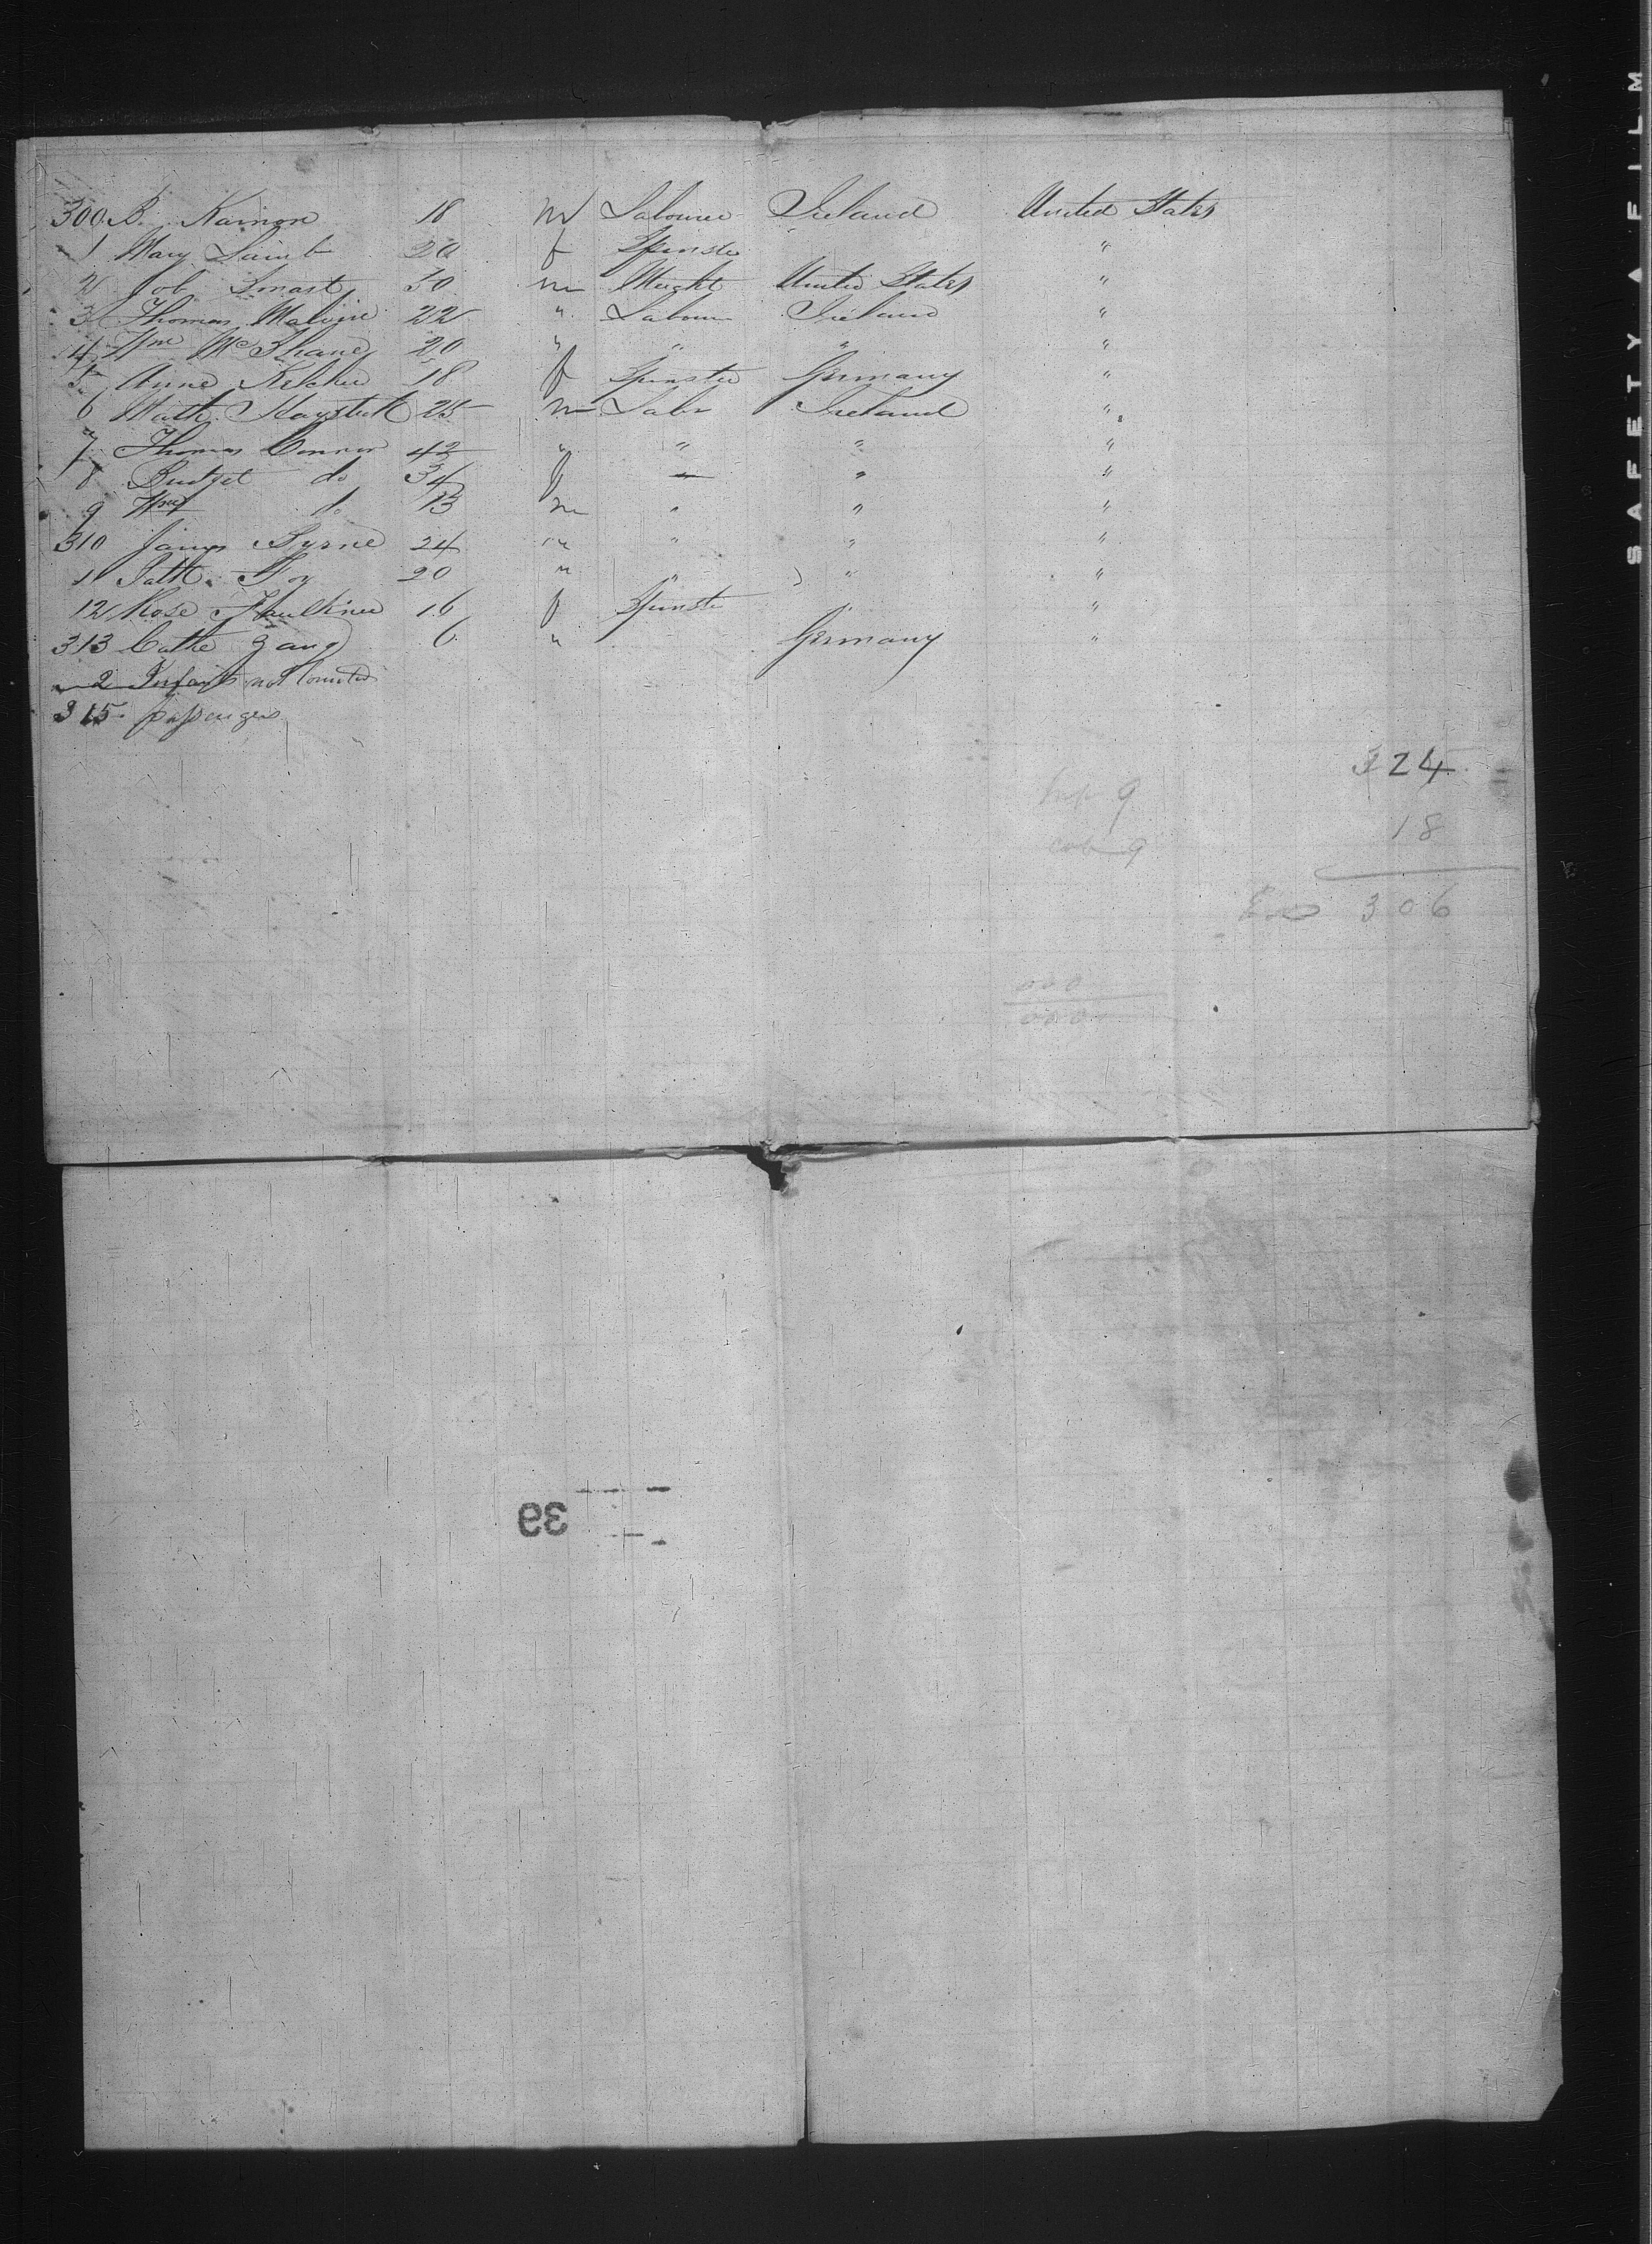 300 B. Kamon 18 m Labourer Ireland United States
1 Mary Lamb 20 f Spinster "
2 Job Smart 30 m Mercht United States "
3 Thomas Malvine 22 " Labour Ireland "
4 Wm McShane 20 " " " "
5 Anne Kelcher 18 f Spinster Germany "
6 25 m Labr Ireland "
7 Thomas Connor 42 " " " "
8 Bridget do 34 f — " "
9 Wm do 13 m " " "
310 James Byrne 24 " " " "
1 Patk Foy 20 " " " "
12 Rose Faulkner 16 f Spinster " "
313 Cathe Zang 6 " Germany "
2 Infants not Counted
315 passengers
324
Inf 9
18
cab 9
306
000
000
39
SAFETY A FILM